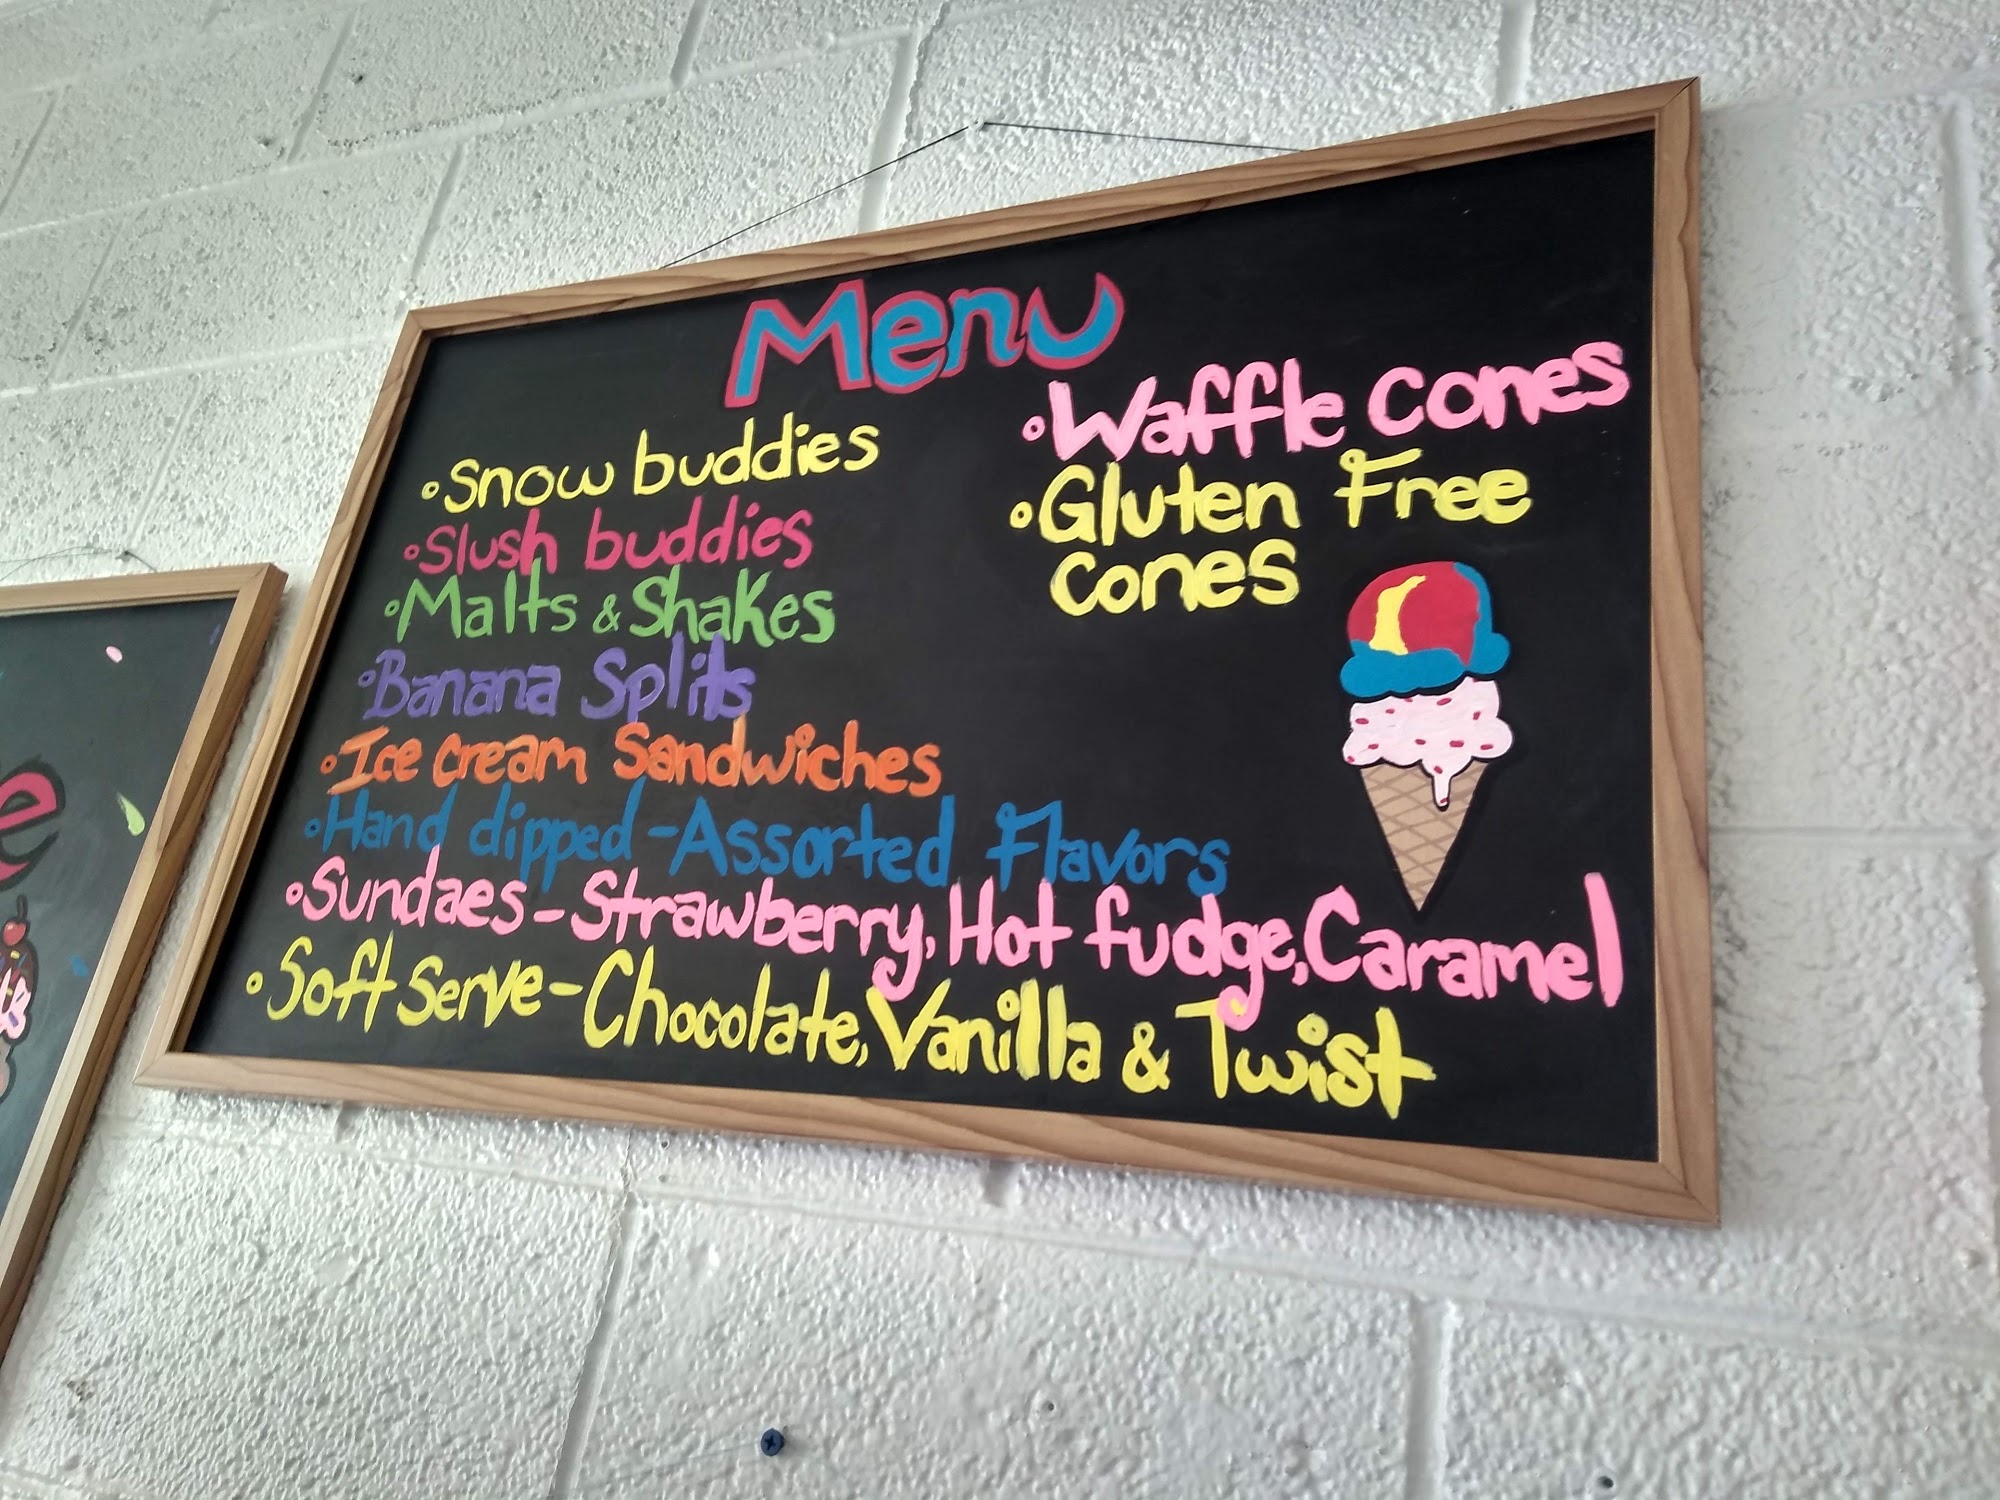 Menu
• Snow buddies
• Slush buddies
• Malts & Shakes
• Banana Splits
• Ice cream Sandwiches
• Hand dipped - Assorted Flavors
• Sundaes - Strawberry, Hot fudge, Caramel
• Soft Serve - Chocolate, Vanilla & Twist
• Waffle cones
• Gluten Free
cones